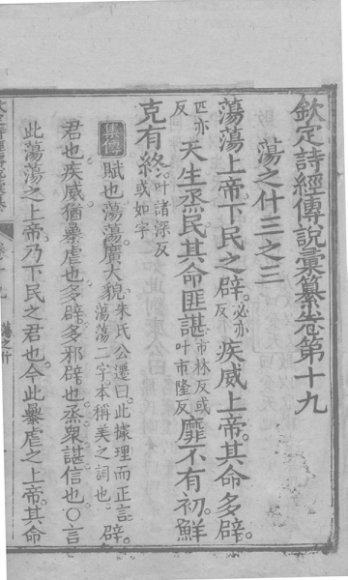 欽定詩經傳說彙纂卷第十九
蕩之什三之三
蕩蕩上帝下民之辟必亦反疾威上帝其命多辟
匹亦反天生烝民其命匪諶市林反或叶市隆反靡不有初鮮
克有終叶諸深反或如字
集傳賦也蕩蕩廣大貌朱氏公遷曰此據理而正言蕩蕩二字本稱美之詞也辟
君也疾威猶暴虐也多辟多邪辟也烝衆諶信也○言
此蕩蕩之上帝乃下民之君也今此暴虐之上帝其命
蕩之什